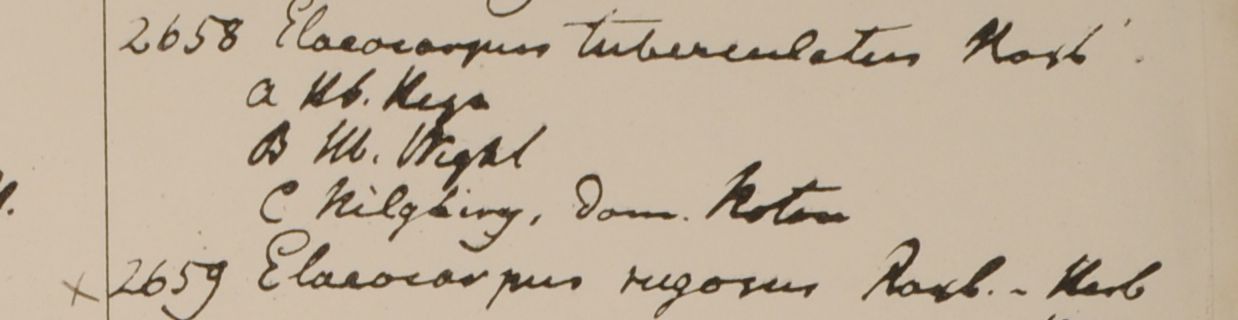 2658 Elaeocarpus tuberculatus Roxb.
a Hb. Heyn
B Hb. Wight
C Nilghirry, Dom. Noton
x 2659 Elaeocarpus rugosus Roxb. - Herb